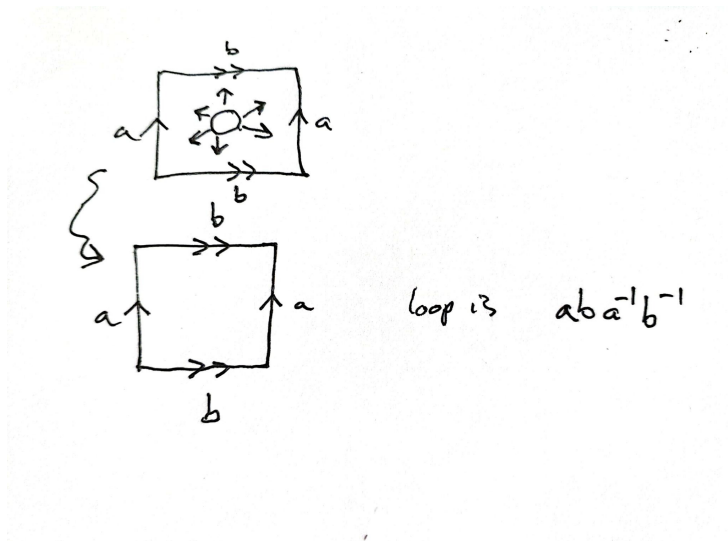 b
a a
b
b
a a
loop is aba⁻¹b⁻¹
b